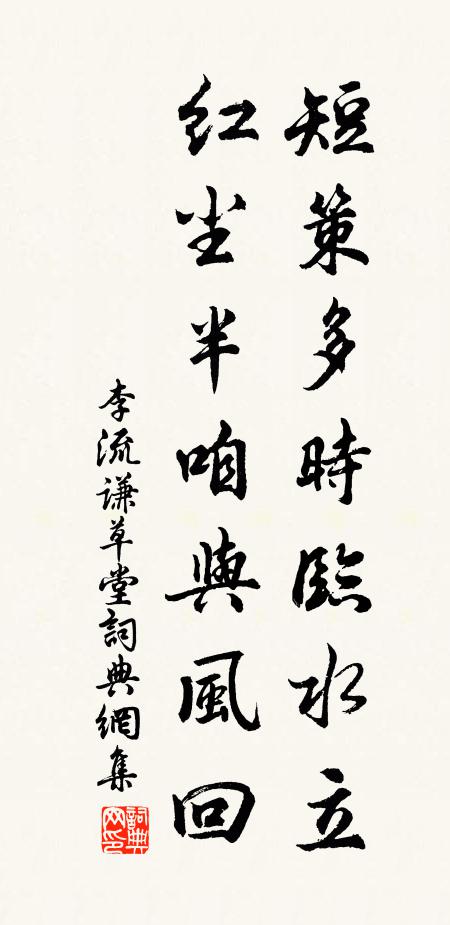 短策多時臨水立
紅尘半咱與風回
李流謙草堂詞典網集
詞典网印